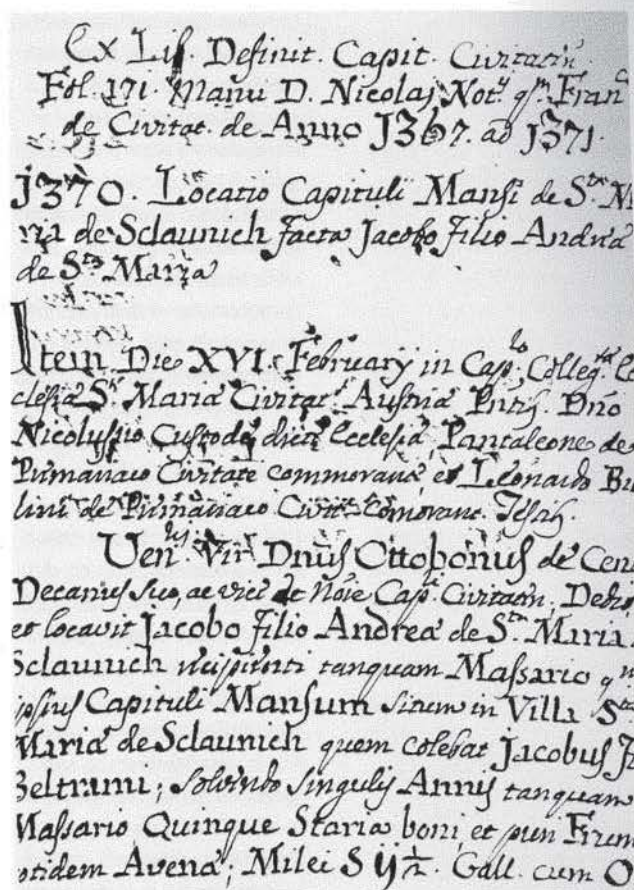 Ex Lib. Definit. Capit. Civitatis
Fol. 171. Manu D. Nicolaj Not.ij q.m Fran.
de Civitat. de Anno 1367. ad 1371.
1370. Locatio Capituli Mansi de S.ta M
ria de Sclaunich facta Jacobo Filio Andreæ
de S.ta Maria
Item Die XVI. February in Cap.lo Colleg.tæ Ec
clesiæ S.tæ Mariæ Civitat.s Austriæ Pntib. Dno
Nicolussio Custode dictæ Ecclesiæ, Pantaleone de
Pirmaniaco Civitate commorane, et Leonardo Bu
lini de Pirmaniaco Civit. comorane. Testib.
Ven.lis Vir Dnus Ottobonus de Cen
Decanus suo, ac vice et noie Cap.li Civitaten. Dedit,
et locavit Jacobo Filio Andreæ de S.ta Maria
Sclaunich recipienti tanquam Massario
ipsius Capituli Mansum situm in Villa S.tæ
Mariæ de Sclaunich quem colebat Jacobus F
Beltrami; solvendo singulis Annis tanquam
Massario Quinque Staria boni, et puri Frum
otidem Avenæ; Milei S ij ½. Gall. cum O